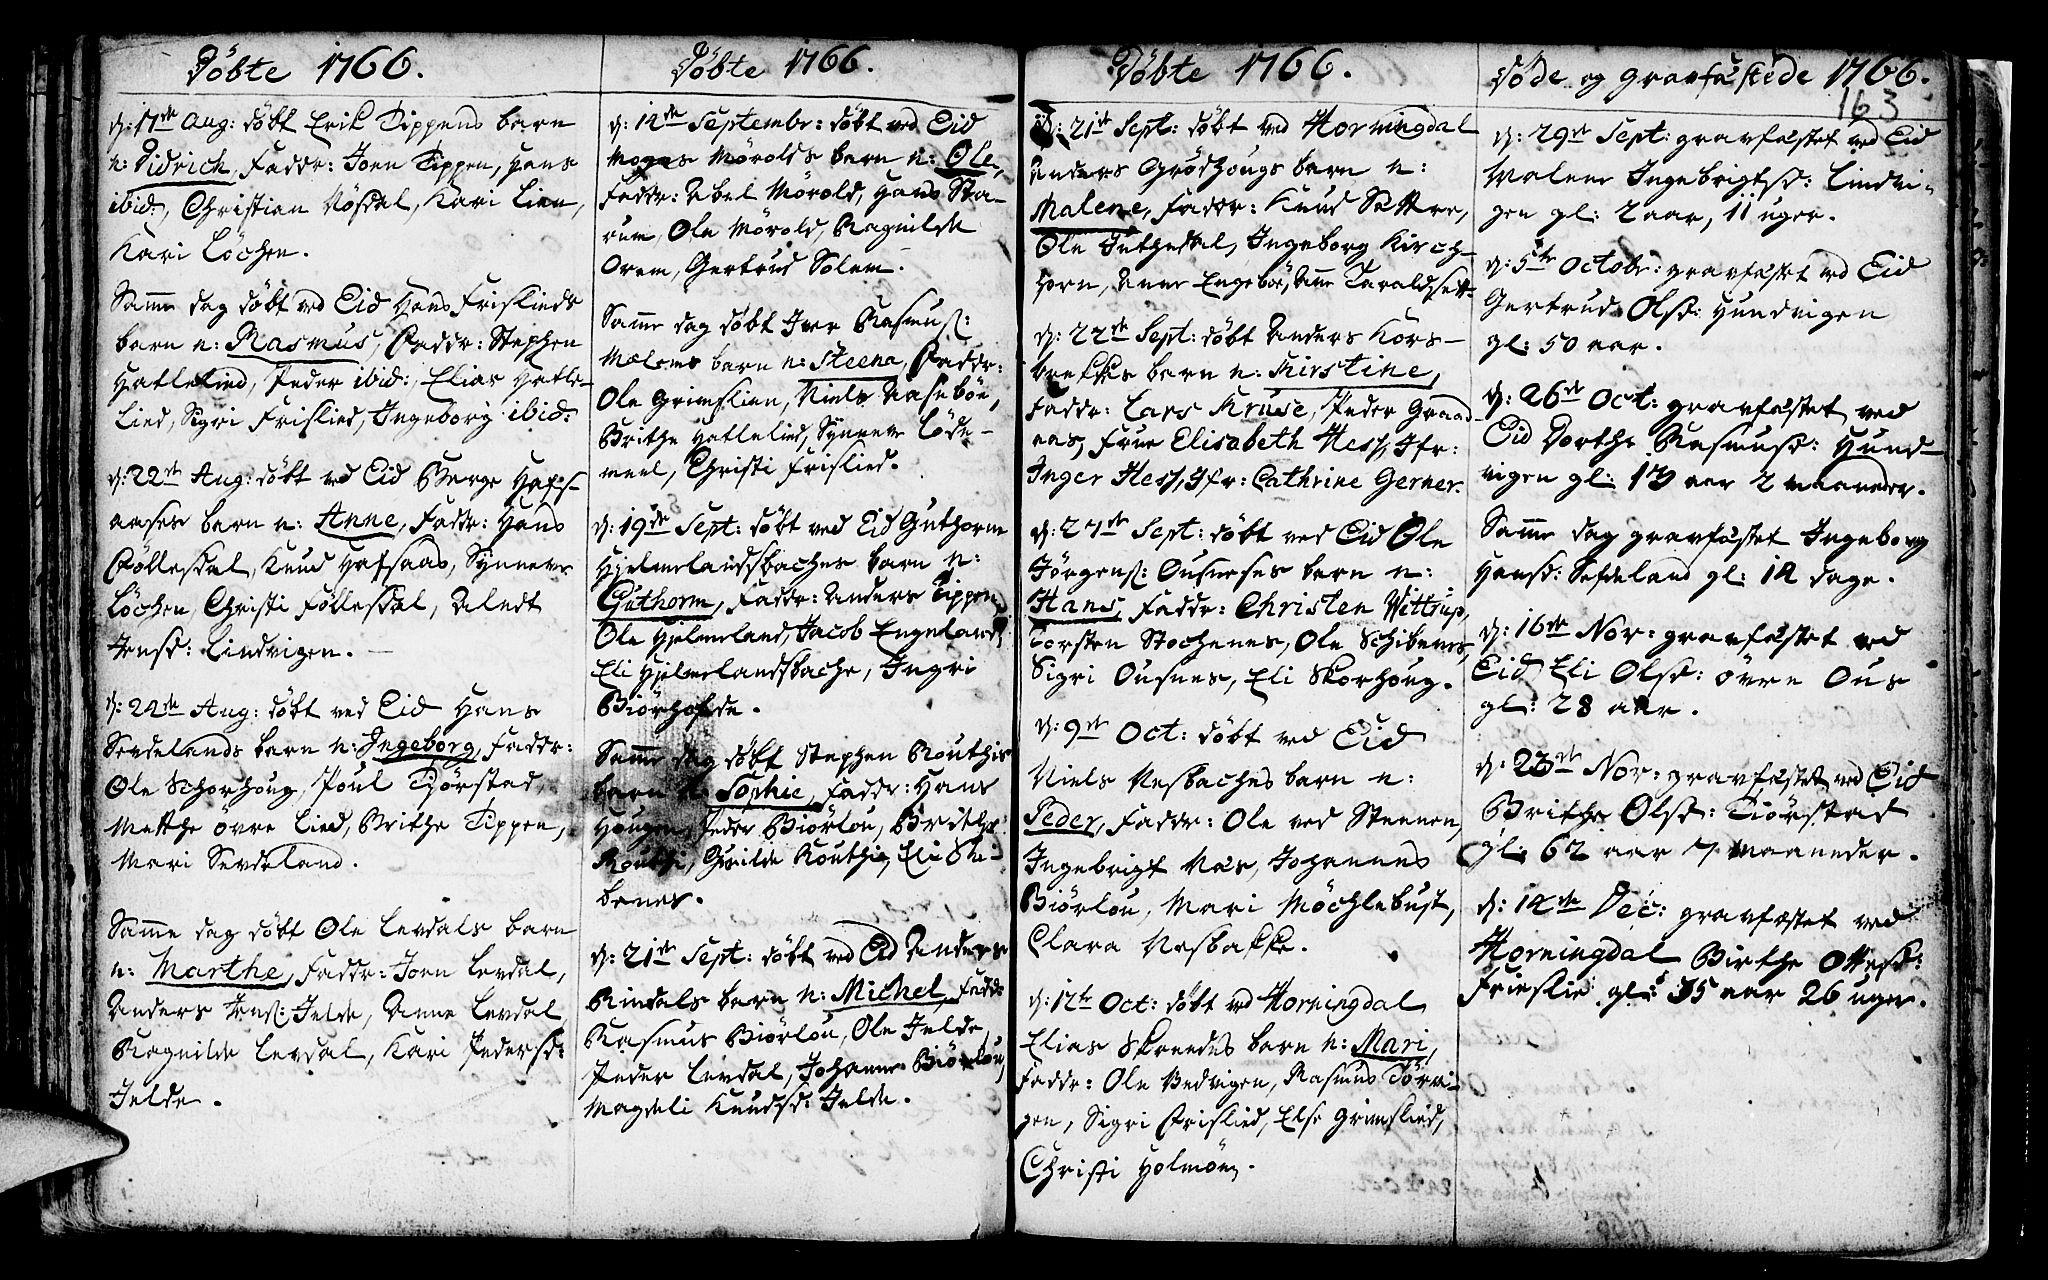 Döbte 1766.
d: 17de Aug: döbt Erik Tippens barn
n: Didrich, Faddr: Joen Tippen, Hans
ibid:, Christian Nösdal, Kari Lien,
Kari Löchen.
Samme dag döbt ved Eid Hans Frislieds
barn n: Rasmus, Faddr: Stephen
Hatlelied, Peder ibid:, Elias Hatle-
lied, Sigri Frislied, Ingeborg ibid:
d: 22de Aug: döbt ved Eid Berge Hafs-
aases barn n: Anne, Faddr: Hans
Föllesdal, Knud Hafsaas, Synneve
Löchen, Christi Föllesdal, Alndt
Jensd: Lindvigen.
d: 24de Aug: döbt ved Eid Hans
Sevdelands barn n: Ingeborg, Faddr:
Ole Schorhoug, Poul Tiörstad,
Mette övre Lied, Brithe Tippen,
Mari Sevdeland.
Samme dag döbt Ole Levdals barn
n: Marthe, Faddr: Joen Levdal,
Anders Jens: Jelde, Anne Levdal,
Ragnilde Levdal, Kari Pedersd:
Jelde.
Döbte 1766.
d: 14de Septembr: döbt ved Eid
Mogns Mörolds barn n: Ole,
Faddr: Abel Mörold, Hans Sta-
rum, Ole Mörold, Ragnilde
Orem, Gertrud Solem.
Samme dag döbt Iver Rasmus:
Mælems barn n: Steena, Faddr:
Ole Grimslien, Niels Aaseböe,
Brithe Hatlelied, Synneve Löde-
meel, Christi Frislied.
d: 19de Sept: döbt ved Eid Guthorm
Hjelmelandsbaches barn n:
Guthorm, Faddr: Anders Tippen,
Ole Hjelmeland, Jacob Engeland,
Eli Hjelmelandsbache, Ingri
Biörhofde.
Samme dag döbt Stephen Routhis
barn n: Sophie, Faddr: Hans
Hougen, Peder Biörlou, Brithe
Routhi, Gunilde Routhi, Eli Ski-
benes.
d: 21de Sept: döbt ved Eid Anders
Rindals barn n: Michel, Faddr:
Rasmus Biörlou, Ole Jelde,
Peder Levdal, Johanne Biörlou,
Magdeli Knudsd: Jelde.
Döbte 1766.
d: 21de Sept: döbt ved Horningdal
Anders Grodhougs barn n:
Malene, Faddr: Knud Sættre,
Ole Juthedal, Ingeborg Kirch-
horn, Anne Engeböe, Anne Taraldsett.
d: 22de Sept: döbt Anders Kors-
brekkes barn n: Kirstine,
Faddr: Lars Kruse, Peder Graad-
aas, Frue Elisabeth Hess, Jfr:
Inger Hess, Jfr: Cathrine Gerner.
d: 27de Sept: döbt ved Eid Ole
Jörgens: Ousneses barn n:
Hans, Faddr: Christen Wittrup,
Torsten Stochenes, Ole Schibenes,
Sigri Ousnes, Eli Skorhoug.
d: 9de Oct: döbt ved Eid
Niels Nesbaches barn n:
Peder, Faddr: Ole ved Steenen,
Ingebrigt Næs, Johannes
Biörlou, Mari Möchlebust,
Clara Nesbakke.
d: 12te Oct: döbt ved Horningdal
Elias Skreedes barn n: Mari,
Faddr: Ole Nedvigen, Rasmus Törvi-
gen, Sigri Frislied, Else Grimslied,
Christi Holmöen.
Döde og gravfæstede 1766.
163
d: 29de Sept: gravfæstet ved Eid
Malene Ingebrigtsd: Lindvi-
gen gl: 2 aar, 11 uger.
d: 5te Octobr: gravfæstet ved Eid
Gertrud Olsd: Hundvigen
gl: 50 aar.
d: 26de Oct: gravfæstet ved
Eid Dorthe Rasmusd: Hund-
vigen gl: 17 aar 2 maaneder.
Samme dag gravfæstet Ingeborg
Hansd: Sefdeland gl: 14 dage.
d: 16de Nov: gravfæstet ved
Eid Eli Olsd: övre Ous
gl: 28 aar.
d: 23de Nov: gravfæstet ved Eid
Brithe Olsd: Tiörstad
gl: 62 aar 7 maaneder.
d: 14de Dec: gravfæstet ved
Horningdal Birthe Ottesd:
Frieslie gl: 35 aar 26 uger.